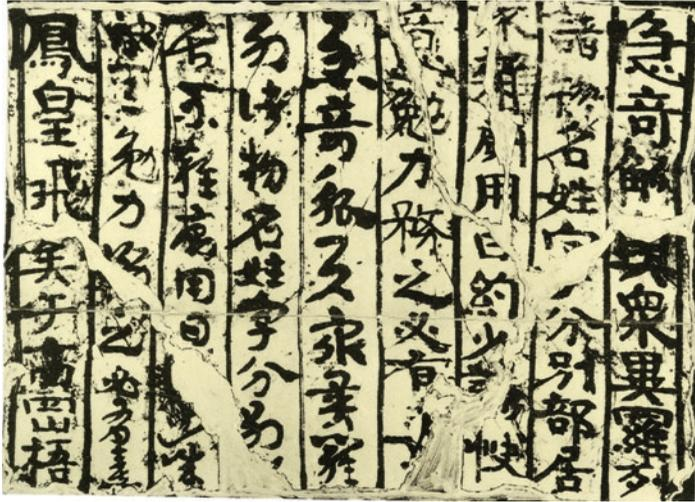 急奇觚與衆異羅列
諸物名姓字分別部居
不雜廁用日約少誠快
意勉力務之必有
急奇觚與衆異羅
列諸物名姓字分別
居不雜廁用日
意勉力務之必有喜
鳳皇飛矣于高岡梧